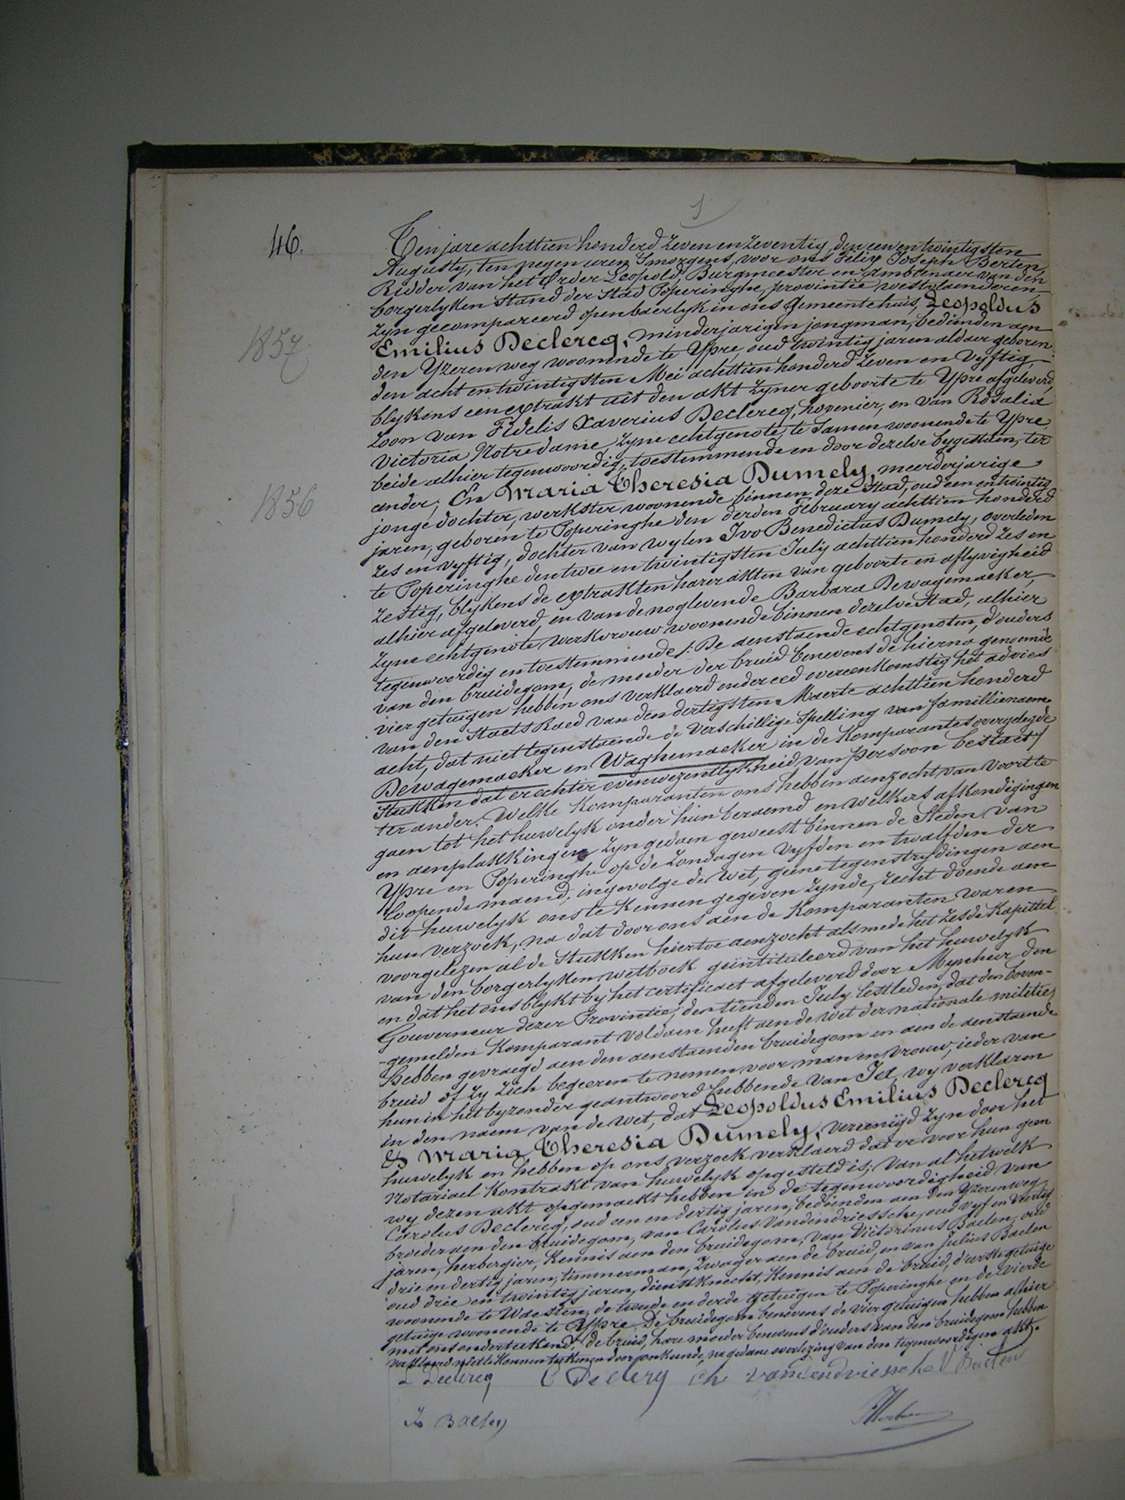 46.
Ten jare achttien honderd zeven en zeventig, den een en twintigsten
Augusty, ten negen uren 's morgens, voor ons Felix Joseph Berten,
Ridder van het Order Leopold, Burgmeester en Ambtenaer van den
borgerlyken stand der Stad Poperinghe, provintie westvlaenderen
zyn gecompareerd openbaerlyk in ons gemeentehuis, Leopoldus
1857
Emilius Declercq, minderjarigen jongman, bedienden aen
den Yzeren weg woonende te Ypre, oud twintig jaren aldaer geboren
den acht en twintigsten Mei achttien honderd zeven en vyftig,
blykens een extrakt uit den akt zyner geboorte te Ypre afgeleverd,
zoon van Fidelis Xaverius Declercq, hovenier, en van Rosalia
Victoria Notredame zyne echtgenote, te samen woonende te Ypre,
beide alhier tegenwoordig, toestemmende en door dezelve bygestaen, ter
1856
eender; En Maria Theresia Dumely, meerderjarige
jonge dochter, werkster woonende binnen deze Stad, oud een en twintig
jaren, geboren te Poperinghe den derden February achttien honderd
zes en vyftig, dochter van wylen Ivo Benedictus Dumely, overleden
te Poperinghe den twee en twintigsten July achttien honderd zes en
zestig, blykens de extrakten harer akten van geboorte en aflyvigheid
alhier afgeleverd, en van de nog levende Barbara Dewagemaeker,
zyne echtgenote werkvrouw woonende binnen dezelve Stad, alhier
tegenwoordig en toestemmende /. De aenstaende echtgenoten, d'ouders
van den bruidegom, de moeder der bruid benevens de hierna genoemde
vier getuigen hebben ons verklaerd onder eed overeenkomstig het advies
van den Staets Raed van den dertigsten Maerte achttien honderd
acht, dat niet tegenstaende de verschillige spelling van famillienaem
Dewagemaeker en Waghemaeker in de komparantes overgelegde
stukken dat er echter evenwezentlykheid van Persoon bestaet /
ter ander. Welke komparanten ons hebben aenzocht van voort te
gaen tot het huwelyk onder hun beraemd en welkers afkondigingen
en aenplakkingen zyn gedaen geweest binnen de Steden van
Ypre en Poperinghe op de Zondagen vyfden en twalfden der
loopende maend, ingevolge de wet, geene tegenstrydingen aen
dit huwelyk ons te kennen gegeven zynde, recht doende aen
hun verzoek, na dat door ons aen de komparanten waren
voorgelezen al de stukken hiertoe aenzocht alsmede het zesde Kapittel
van den borgerlyken wetboek geïntituleerd van het huwelyk
en dat het ons blykt by het certificaet afgeleverd door Mynheer den
Gouverneur dezer Provintie, den tienden July lestleden, dat den boven-
-gemelden komparant voldaen heeft aen de wet der nationale militie;
Hebben gevraegd aen den aenstaenden bruidegom en aen de aenstaende
bruid of zy zich begeeren te nemen voor man en vrouw, ieder van
hun in het byzonder geantwoord hebbende van Ja, wy verklaren
in den naem van de wet, dat Leopoldus Emilius Declercq
& Maria Theresia Dumely, vereenigd zyn door het
huwelyk en hebben op ons verzoek verklaerd dat er voor hun geen
Notariael Kontrakt van huwelyk opgesteld is; van al hetwelk
wy dezen akt opgemaekt hebben in de tegenwoordigheid van
Carolus Declercq, oud een en dertig jaren, bedienden aen den Yzerenweg
broeder aen den bruidegom, van Carolus Vandendriessche, oud vyf en veertig
jaren, herbergier, kennis aen den bruidegom, van Victorinus Baelen, oud
drie en dertig jaren, timmerman, zwager aen de bruid, en van Julius Baelen
oud drie en twintig jaren, dienstknecht, kennis aen de bruid, d'eerste getuige
woonende te Waesten, de tweede en derde getuigen te Poperinghe en de vierde
getuige woonende te Ypre. De bruidegom benevens de vier getuigen hebben alhier
met ons onderteekend, de bruid, hare moeder benevens d'ouders van den bruidegom hebben
verklaerd niet te kunnen teekenen door onkunde, na gedane voorlezing van den tegenwoordigen akt.
L Declercq C Declercq Ch vandendriessche V Baelen
J. Baelen